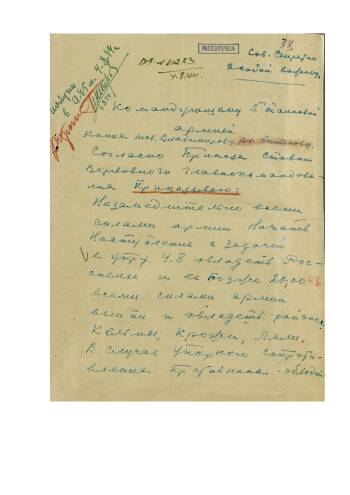 38
РАССЕКРЕЧЕНО
Сов. Секретно
Особой важности
4.8.44.
получен
в 0.45 м. 4.8.44
Командующему 5 Танковой
армией
Копия тов. Владимирову,
Согласно Приказа Ставки
Верховного Главнокомандова-
ния Приказываю:
Незамедлительно всеми
силами армии Начать
Наступление с задачей
к утру 4.8 овладеть Рос-
сиены и не позже 20.00 4.8
всеми силами армии
выйти и овладеть районом
Кельмы, Крожи, Ляли.
В случае упорного сопроти-
вления Противника - обходить